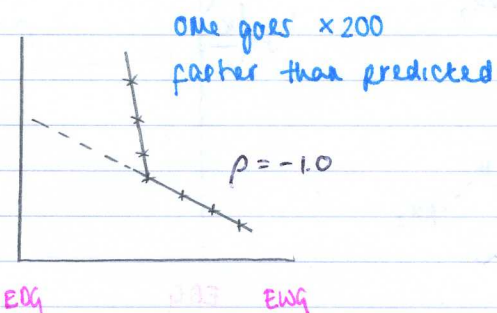 OMe goes ×200
faster than predicted
ρ = -1.0
EDG EWG